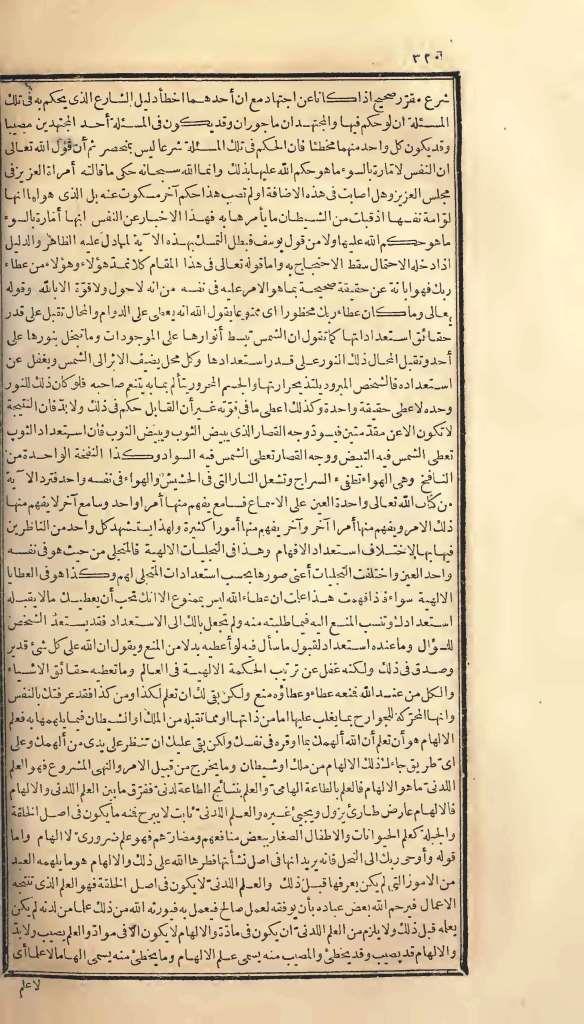 ٣٢٠
شرع مقرر صحيح اذا كانا عن اجتهاد مع ان أحدهما اخطأ دليل الشارع الذى يحكم به فى تلك
المسئلة ان لو حكم فيها والمجتهدان مأجوران وقد يكون فى المسئلة أحد المجتهدين مصيبا
وقد يكون كل واحد منهما مخطئا فان الحكم فى تلك المسئلة شرعا ليس بمنحصر ثم أن قول الله تعالى
ان النفس لامارة بالسوء ما هو حكم الله عليها بذلك وانما الله سبحانه حكى ما قالته أمرأة العزيز فى
مجلس العزيز وهل اصابت فى هذه الاضافة او لم تصب هذا حكم آخر مسكوت عنه بل الذى هو لها انها
لوامة نفسها اذ قبلت من الشيطان ما يأمرها به فهذا الاخبار عن النفس انها أمارة بالسوء
ما هو حكم الله عليها ولا من قول يوسف فبطل التمسك بهذه الآية لما دل عليه الظاهر والدليل
اذا دخله الاحتمال سقط الاحتجاج به واما قوله تعالى فى هذا المقام كلا نمد هؤلاء وهؤلاء من عطاء
ربك فهو ابانة عن حقيقة صحيحة بما هو الامر عليه فى نفسه من انه لا حول ولا قوة الا بالله وقوله
تعالى وما كان عطاء ربك محظورا اى ممنوعا يقول الله انه يعطى على الدوام والمحال تقبل على قدر
حقائق استعداداتها كما تقول ان الشمس تبسط أنوارها على الموجودات وما تبخل بنورها على
أحد وتقبل المحال ذلك النور على قدر استعدادها وكل محل يضيف الاثر الى الشمس ويغفل عن
استعداده فالشخص المبرود يلتذ بحرارتها والجسم المحرور يتألم بما به يتنعم صاحبه فلو كان ذلك للنور
وحده لاعطى حقيقة واحدة وكذلك اعطى ما فى قوته غير أن القابل حكم فى ذلك ولا بد فان النتيجة
لا تكون الا عن مقدمتين فيسود وجه القصار الذى يبيض الثوب ويبيض الثوب فان استعداد الثوب
تعطى الشمس فيه التبيض ووجه القصار تعطى الشمس فيه السواد وكذا النفخة الواحدة من
النافخ وهى الهواء تطفئ السراج وتشعل النار التى فى الحشيش والهواء فى نفسه واحد فترد الآية
من كتاب الله تعالى واحدة العين على الاسماع فسامع يفهم منها أمرا واحد وسامع آخر لا يفهم منها
ذلك الامر ويفهم منها أمرا آخر وآخر يفهم منها أمورا كثيرة ولهذا يستشهد كل واحد من الناظرين
فيها بها لاختلاف استعداد الافهام وهذا فى التجليات الالهية فالمتجلى من حيث هو فى نفسه
واحد العين واختلفت التجليات أعنى صورها بحسب استعدادات المتجلى لهم وكذا هو فى العطايا
الالهية سواء فاذا فهمت هذا علمت ان عطاء الله ليس بممنوع الا انك تحب أن يعطيك ما لا يقبله
استعدادك وتنسب المنع اليه فيما طلبته منه ولم تجعل بالك الى الاستعداد فقد يستعد الشخص
للسؤال وما عنده استعداد لقبول ما سأل فيه لو أعطيه بدلا من المنع ويقول ان الله على كل شئ قدير
وصدق فى ذلك ولكنه غفل عن ترتيب الحكمة الالهية فى العالم وما تعطيه حقائق الاشياء
والكل من عند الله فمنعه عطاء وعطاؤه منع ولكن بقى لك ان تعلم لكذا ومن كذا فقد عرفتك بالنفس
وانها المحركة للجوارح بما يغلب عليها اما من ذاتها او مما تقبله من الملك او الشيطان فيما يلهمها به فعلم
الالهام هو أن تعلم أن الله ألهمك بما وقره فى نفسك ولكن بقى عليك ان تنظر على يدى من ألهمك وعلى
اى طريق جاءك ذلك الالهام من ملك او شيطان وما يخرج من قبيل الامر والنهى المشروع فهو العلم
اللدنى ما هو الالهام فالعلم بالطاعة الهامى والعلم بنتائج الطاعة لدنى ففرق ما بين العلم اللدنى والالهام
فالالهام عارض طارئ يزول ويجئ غيره والعلم اللدنى ثابت لا يبرح فمنه ما يكون فى اصل الخلقة
والجبلة كعلم الحيوانات والاطفال الصغار ببعض منافعهم ومضارهم فهو علم ضرورى لا الهام واما
قوله وأوحى ربك الى النحل فانه يريد انها فى اصل نشأتها فطرها الله على ذلك والالهام هو ما يلهمه العبد
من الامور التى لم يكن يعرفها قبل ذلك والعلم اللدنى لا يكون فى اصل الخلقة فهو العلم الذى تنتجه
الاعمال فيرحم الله بعض عباده بأن يوفقه لعمل صالح فيعمل به فيورثه الله من ذلك علما من لدنه لم يكن
يعلمه قبل ذلك ولا يلزم من العلم اللدنى ان يكون فى مادة والالهام لا يكون الا فى مواد والعلم يصيب ولا بد
والالهام قد يصيب وقد يخطئ والمصيب منه يسمى علم الالهام وما يخطئ منه يسمى الهاما لا علما أى
لا علم